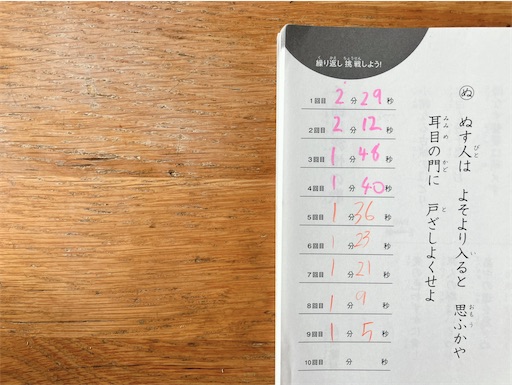 繰り返し挑戦しよう!
1回目 2分29秒
2回目 2分12秒
3回目 1分48秒
4回目 1分40秒
5回目 1分36秒
6回目 1分23秒
7回目 1分21秒
8回目 1分9秒
9回目 1分5秒
10回目 分 秒
ぬ
ぬす人は よそより入ると 思ふかや
耳目の門に 戸ざしよくせよ